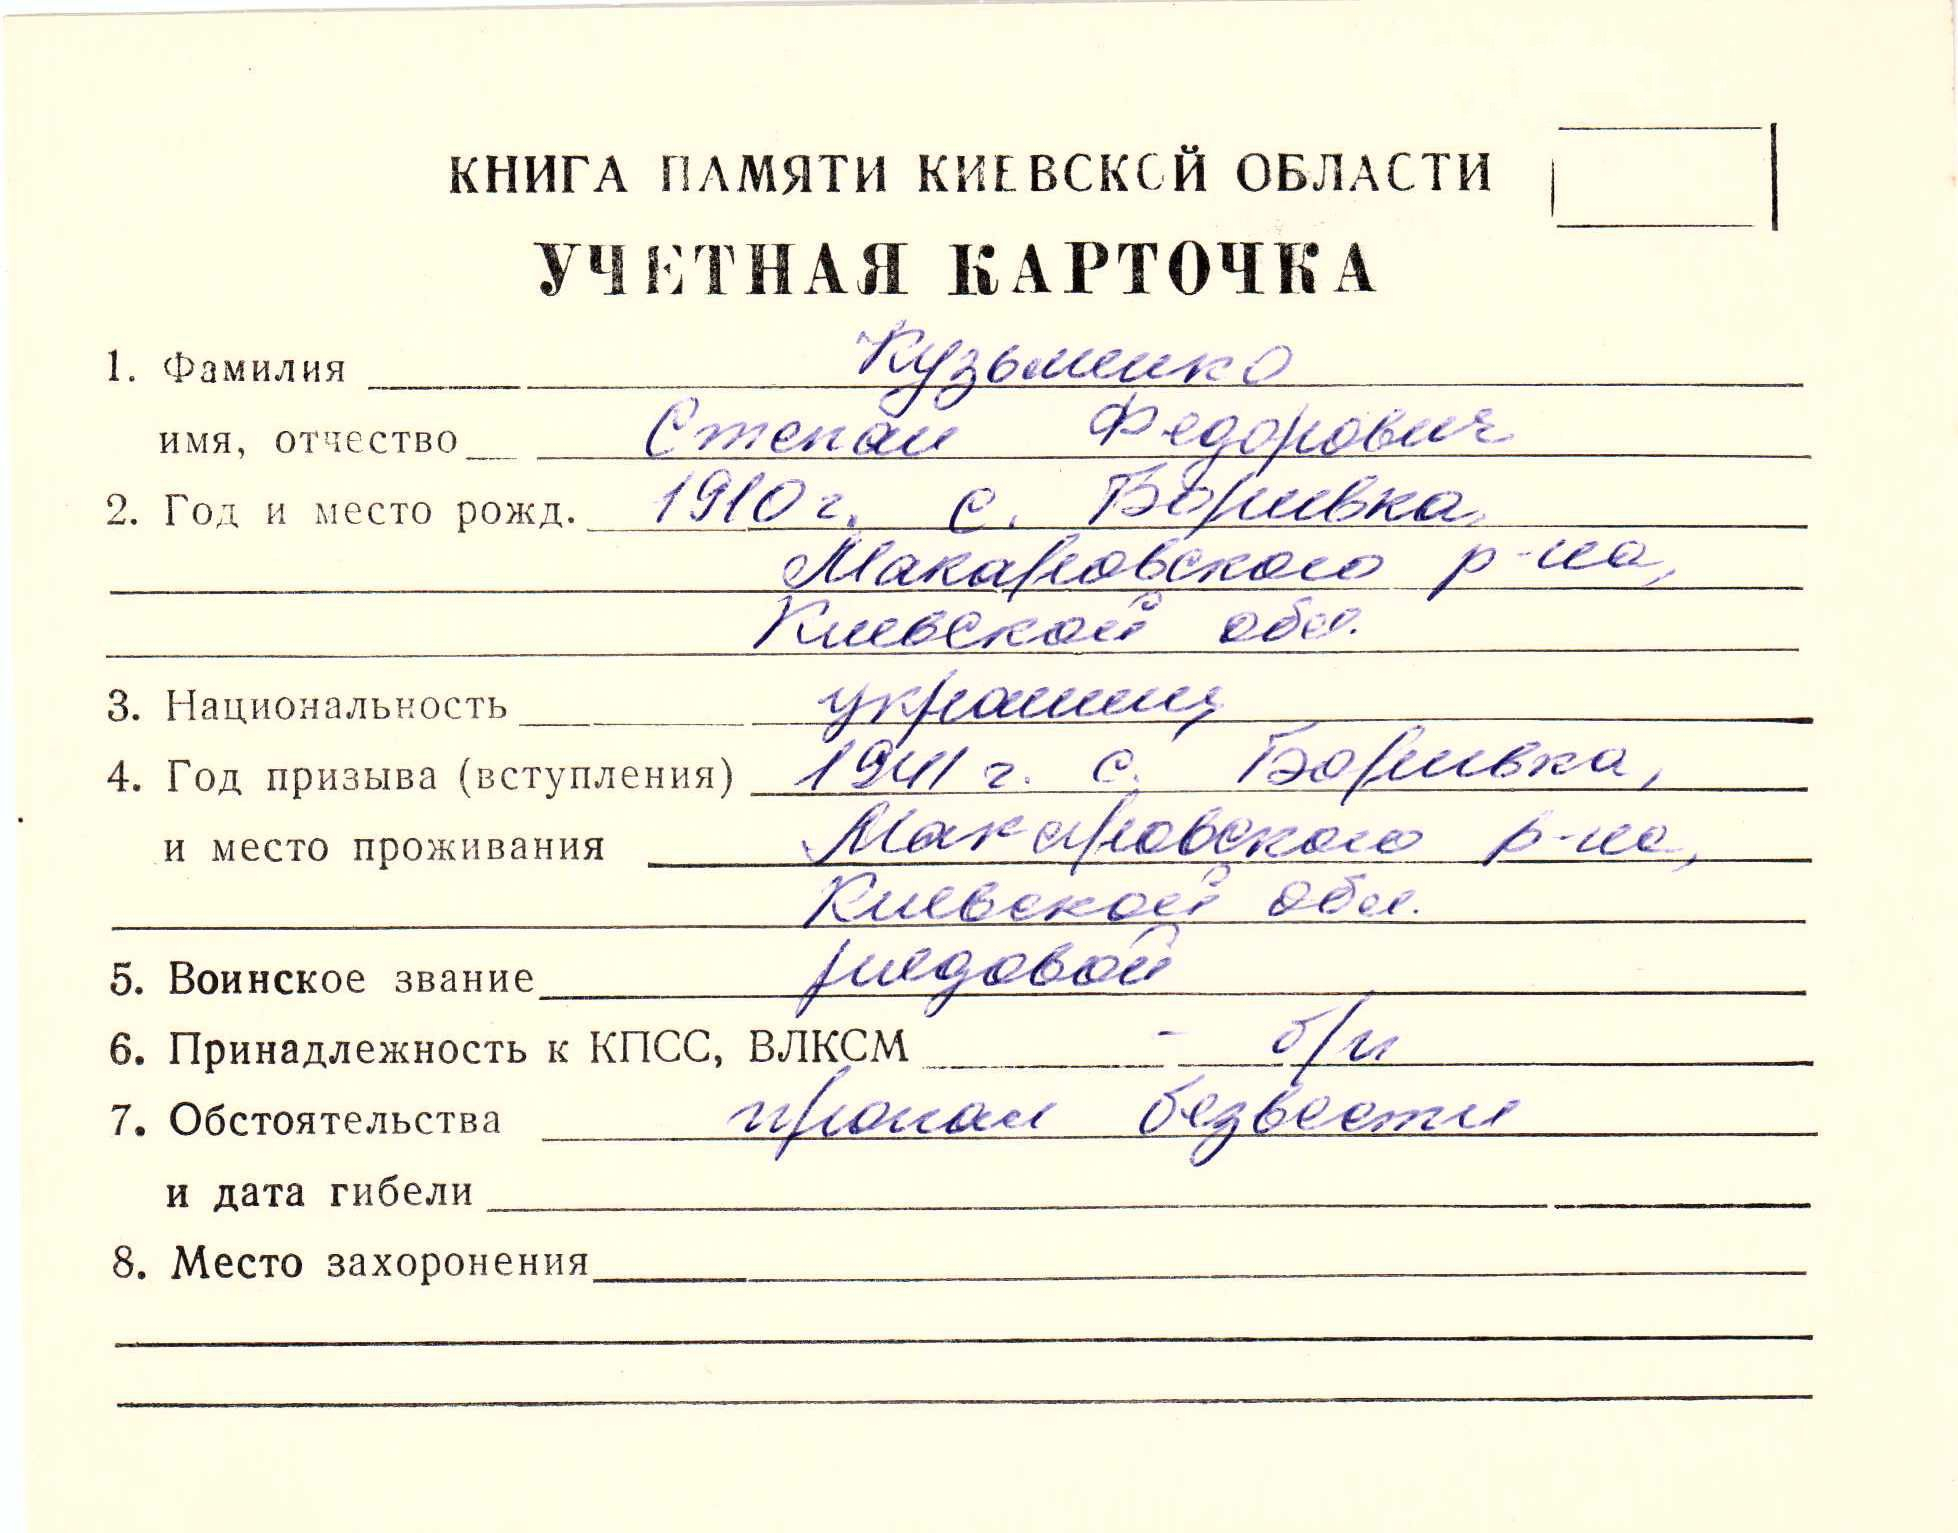 КНИГА ПАМЯТИ КИЕВСКОЙ ОБЛАСТИ
УЧЕТНАЯ КАРТОЧКА
1. Фамилия Кузьменко
имя, отчество Степан Федорович
2. Год и место рожд. 1910 г. с. Боривка,
Макаровского р-на,
Киевской обл.
3. Национальность украинец
4. Год призыва (вступления) 1941 г. с. Боривка,
и место проживания Макаровского р-на,
Киевской обл.
5. Воинское звание рядовой
6. Принадлежность к КПСС, ВЛКСМ - б/п
7. Обстоятельства пропал безвести
и дата гибели
8. Место захоронения